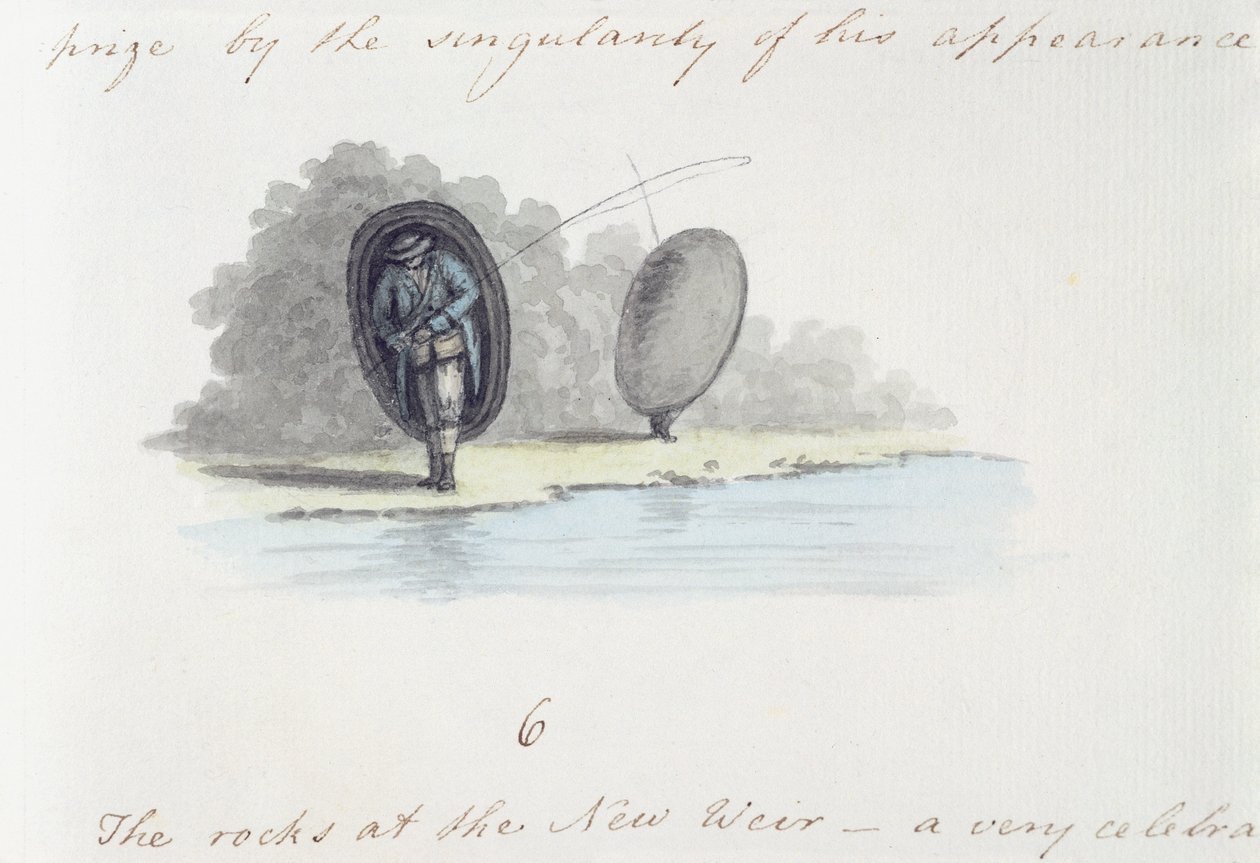 prize by the singularity of his appearance
6
The rocks at the New Weir — a very celebra